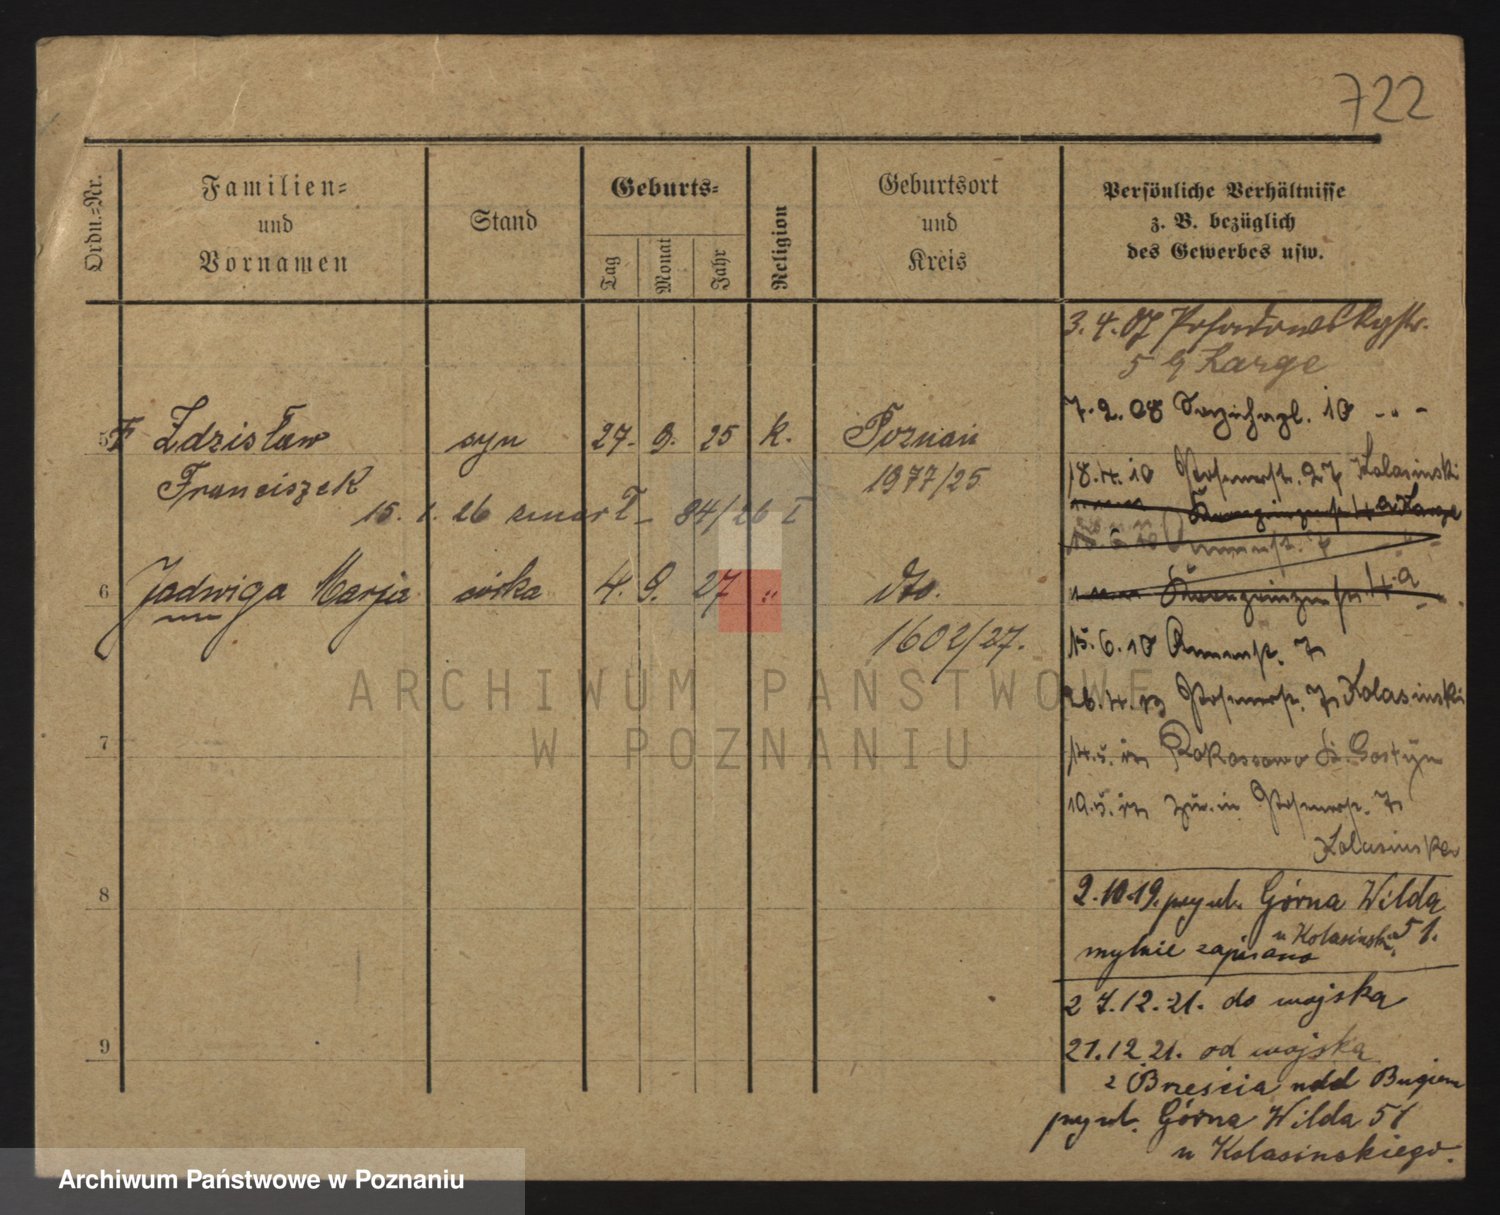 722
Ordn.-Nr.
Familien-
und
Vornamen
Stand
Geburts-
Tag
Monat
Jahr
Religion
Geburtsort
und
Kreis
Persönliche Verhältnisse
z. B. bezüglich
des Gewerbes usw.
5 Zdzisław syn 27. 9. 25 k. Poznań
Franciszek 1977/25
15. 1. 26 zmarł 84/26 I
6 Jadwiga Marja córka 4. 9. 27 " dto.
1602/27.
7
8
9
3.4.07
5 Lange
7.2.08 10 - " -
18.4.10 27 Kolasinski
4a Lange
4a
15.6.10
26.4.13 Kolasinski
Rokossowo Gostyn
zur. in
Kolasinski
2.10.19. przy ul. Górna Wilda
u Kolasinski 51.
mylnie zapisano
27.12.21. do wojska
21.12.21. od wojska
z Brześcia nad Bugiem
przy ul. Górna Wilda 51
u Kolasinskiego.
ARCHIWUM PAŃSTWOWE
W POZNANIU
Archiwum Państwowe w Poznaniu